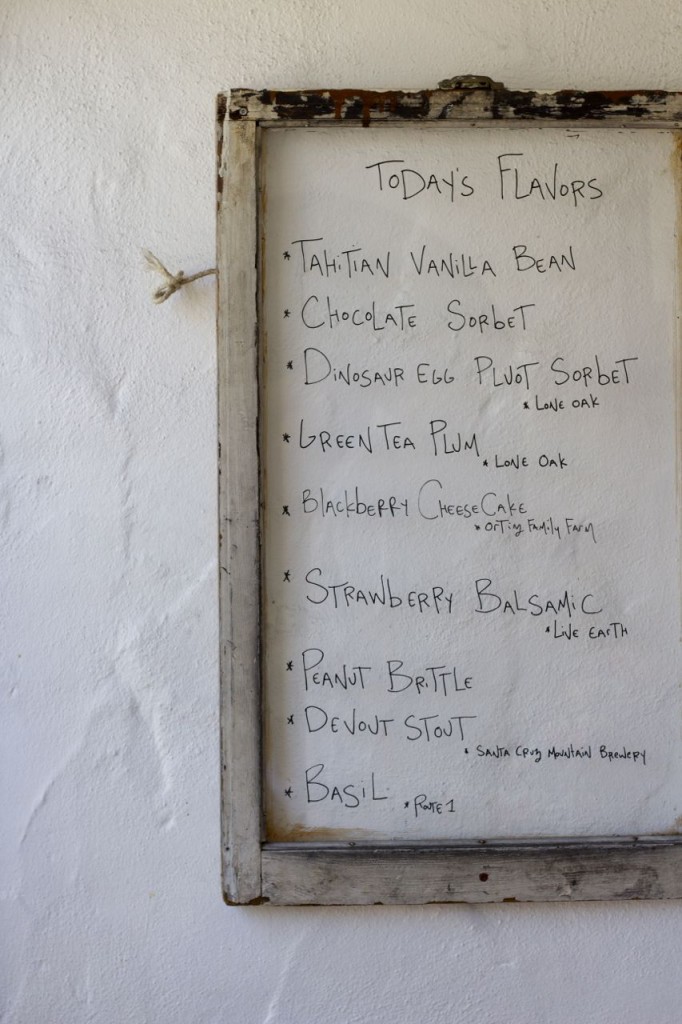 TODAY'S FLAVORS
* TAHITIAN VANILLA BEAN
* CHOCOLATE SORBET
* DINOSAUR EGG PLUOT SORBET
* LONE OAK
* GREEN TEA PLUM
* LONE OAK
* BLACKBERRY CHEESECAKE
* ORTIZ FAMILY FARM
* STRAWBERRY BALSAMIC
* LIVE EARTH
* PEANUT BRITTLE
* DEVOUT STOUT
* SANTA CRUZ MOUNTAIN BREWERY
* BASIL
* ROUTE 1